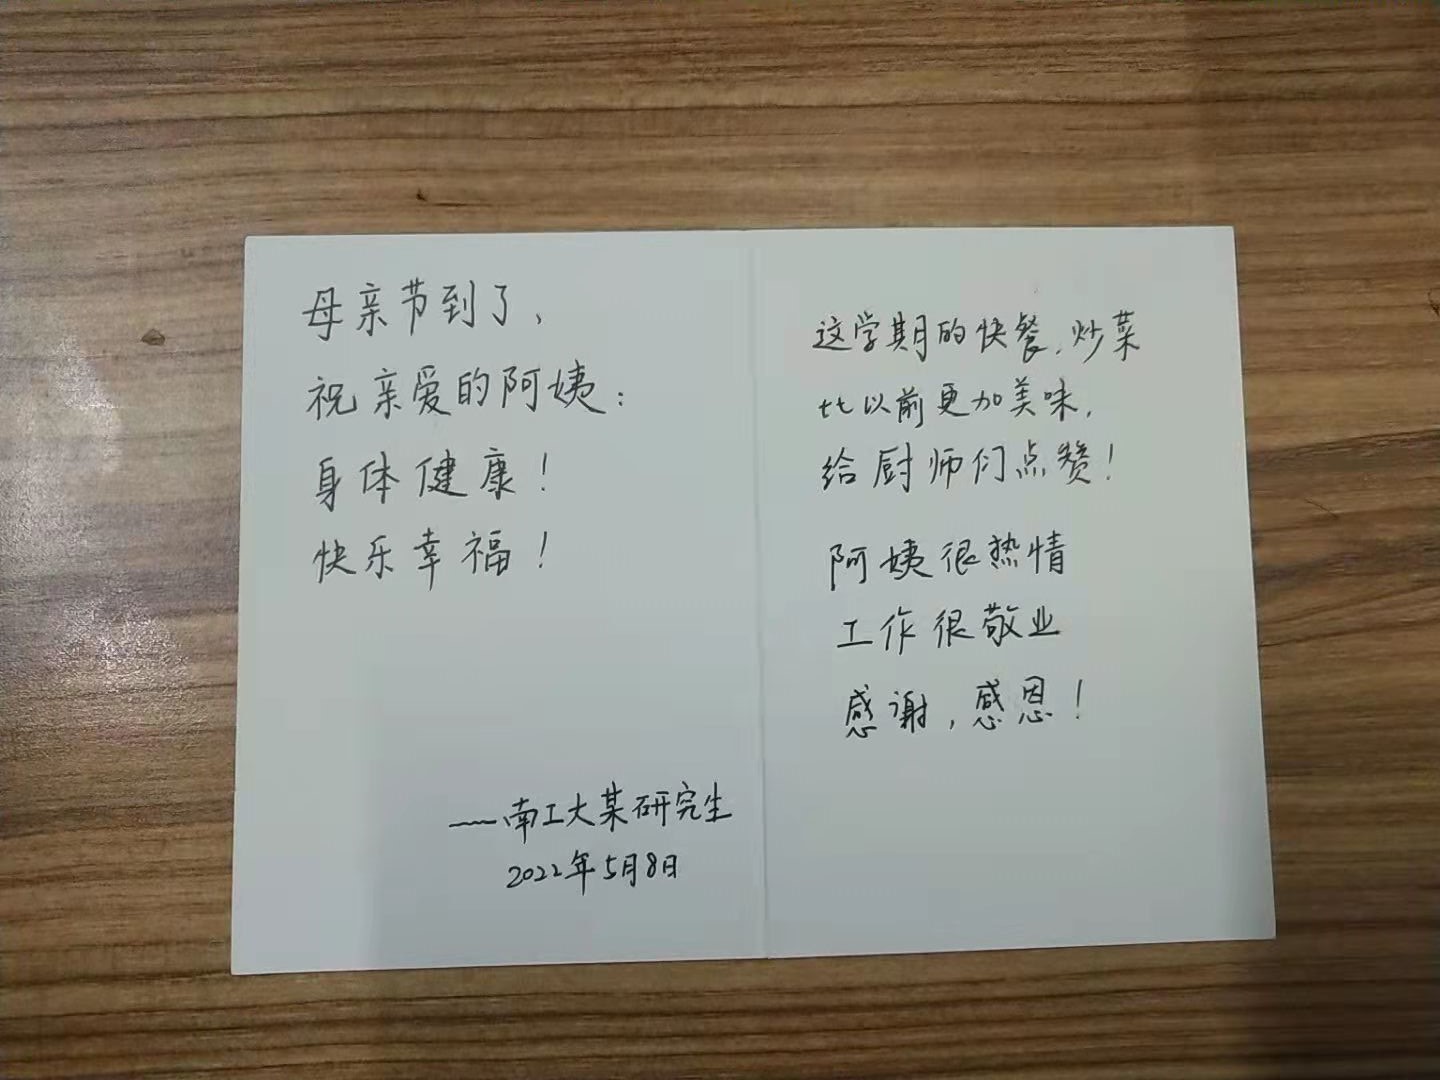 母亲节到了,
祝亲爱的阿姨:
身体健康!
快乐幸福!
——南工大某研究生
2022年5月8日
这学期的快餐,炒菜
比以前更加美味,
给厨师们点赞!
阿姨很热情
工作很敬业
感谢,感恩!